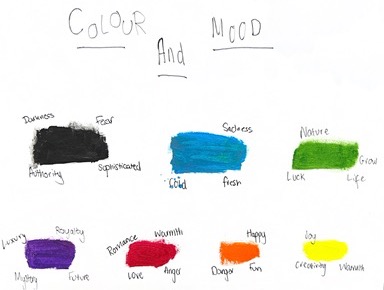 COLOUR
And
MOOD
Darkness Fear
Authority Sophisticated
Sadness
Cold fresh
Nature
Grow
Luck Life
Luxury Royalty
Mystery Future
Romance Warmth
Love Anger
Happy
Danger Fun
Joy
Creativity Warmth